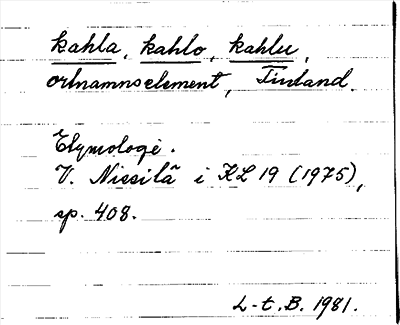 kahla, kahlo, kahlu,
ortnamnselement, Finland.
Etymologi.
V. Nissilä i KL 19 (1975),
sp. 408.
L-t.B. 1981.